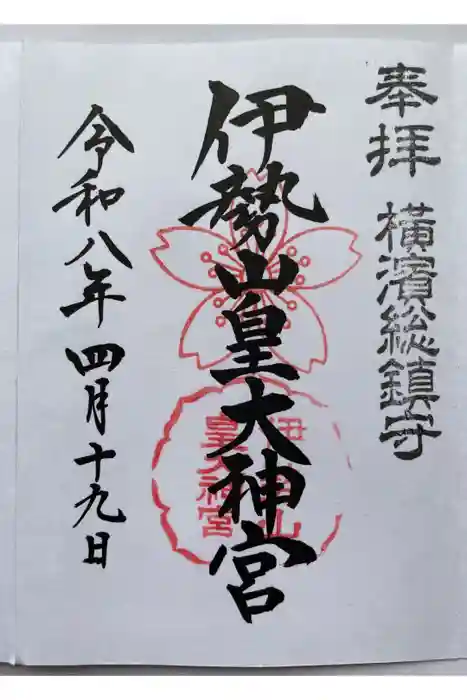 奉拝 横濱総鎮守
伊勢山皇大神宮
伊勢山
皇大神宮
令和八年四月十九日